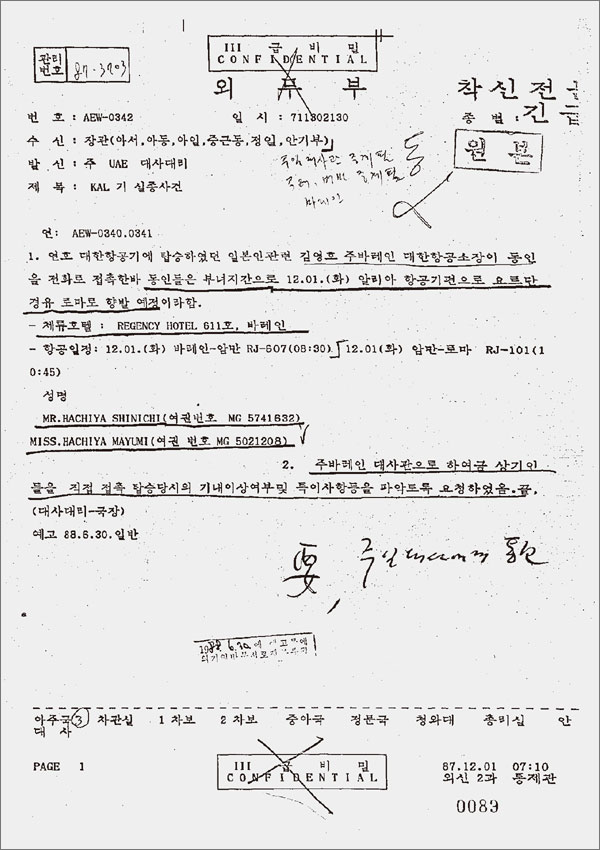 관리
번호
87-3703
III 급 비 밀
CONFIDENTIAL
외 무 부
착신전
긴급
번 호 : AEW-0342 일 시 : 711302130 종 별 :
수 신 : 장관(아서,아동,아일,중근동,정일,안기부)
발 신 : 주 UAE 대사대리
제 목 : KAL 기 실종사건
원 본
연: AEW-0340,0341
1. 연호 대한항공기에 탑승하였던 일본인관련 김영호 주바레인 대한항공소장이 동인
을 전화로 접촉한바 동인들은 부녀지간으로 12.01.(화) 알리아 항공기편으로 요르단
경유 로마로 향발 예정이라함.
- 체류호텔 : REGENCY HOTEL 611호, 바레인
- 항공일정: 12.01.(화) 바레인-암만 RJ-607(08:30) 12.01(화) 암만-로마 RJ-101(1
0:45)
성명
MR.HACHIYA SHINICHI(여권번호 MG 5741632)
MISS.HACHIYA MAYUMI(여권 번호 MG 5021208)
2. 주바레인 대사관으로 하여금 상기인
들을 직접 접촉 탑승당시의 기내이상여부및 특이사항등을 파악토록 요청하였음.끝,
(대사대리-국장)
예고 88.6.30.일반
要,
아주국 3 차관실 1 차보 2 차보 중아국 정문국 청와대 총리실 안
대 사
PAGE 1
III 급 비 밀
CONFIDENTIAL
87.12.01 07:10
외신 2과 통제관
0089